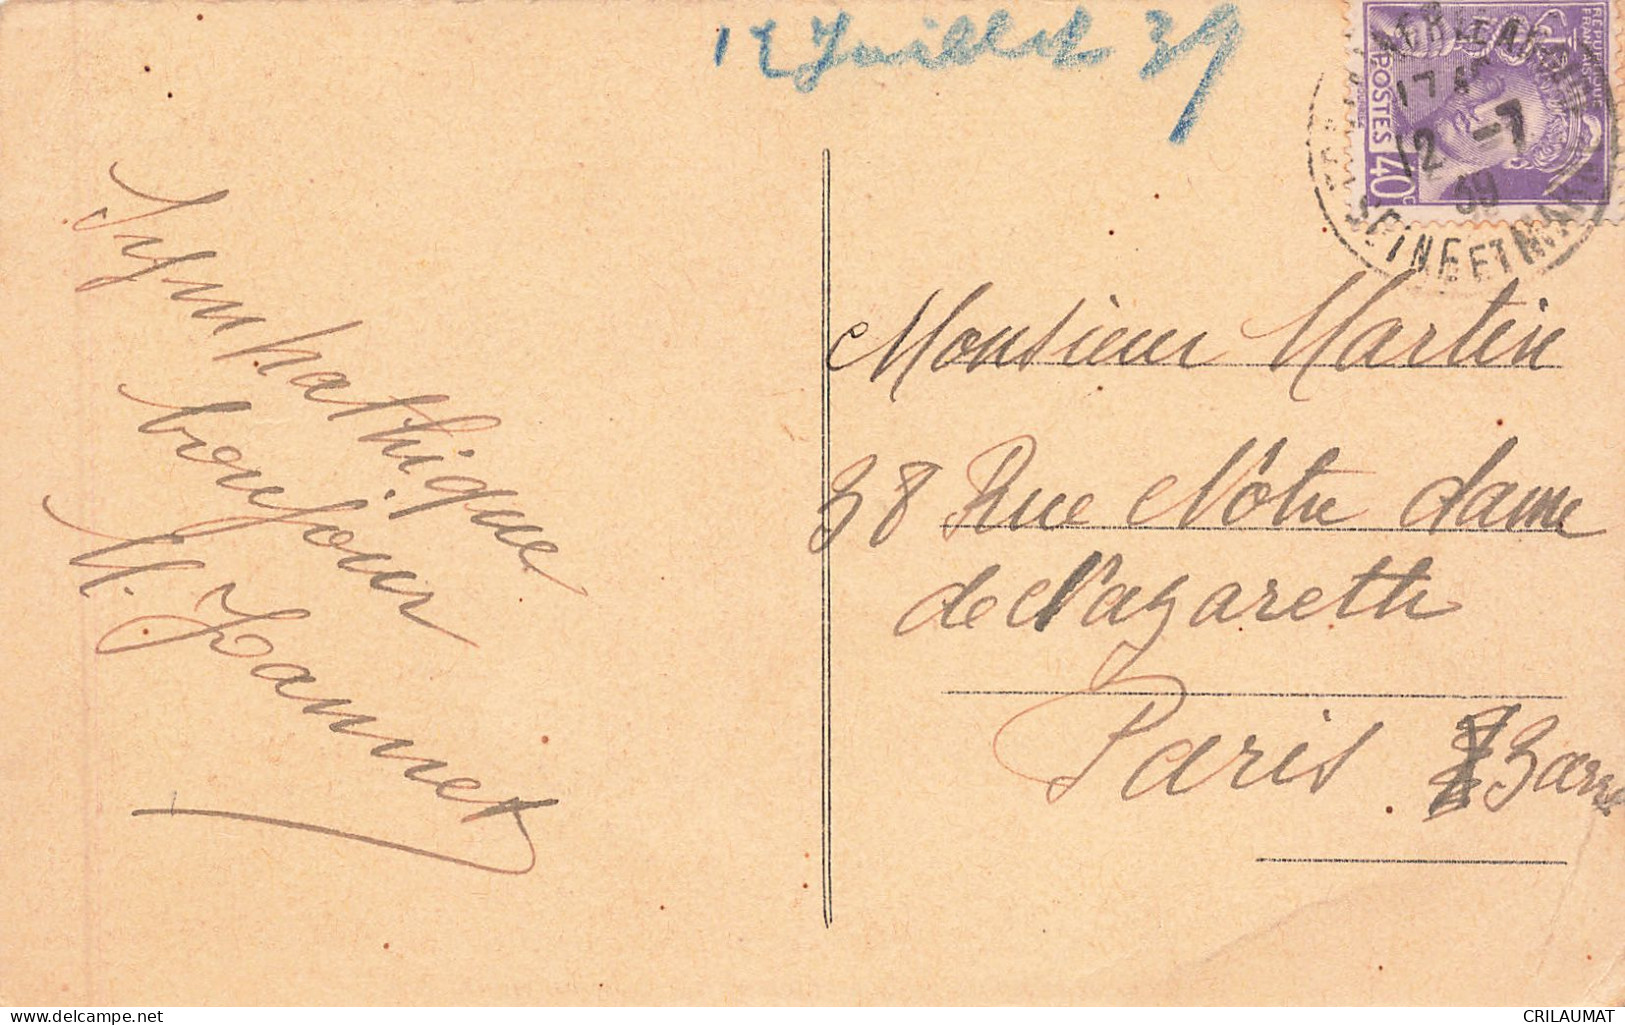 12 Juillet 39
RÉPUBLIQUE
FRANÇAISE
POSTES
40c
17
12 -7
39
SEINE ET M
Sympathique
bonjour
M. Jeannet
Monsieur Martin
38 Rue Nôtre dame
de Nazareth
Paris 3 arr
delcampe.net
CRILAUMAT